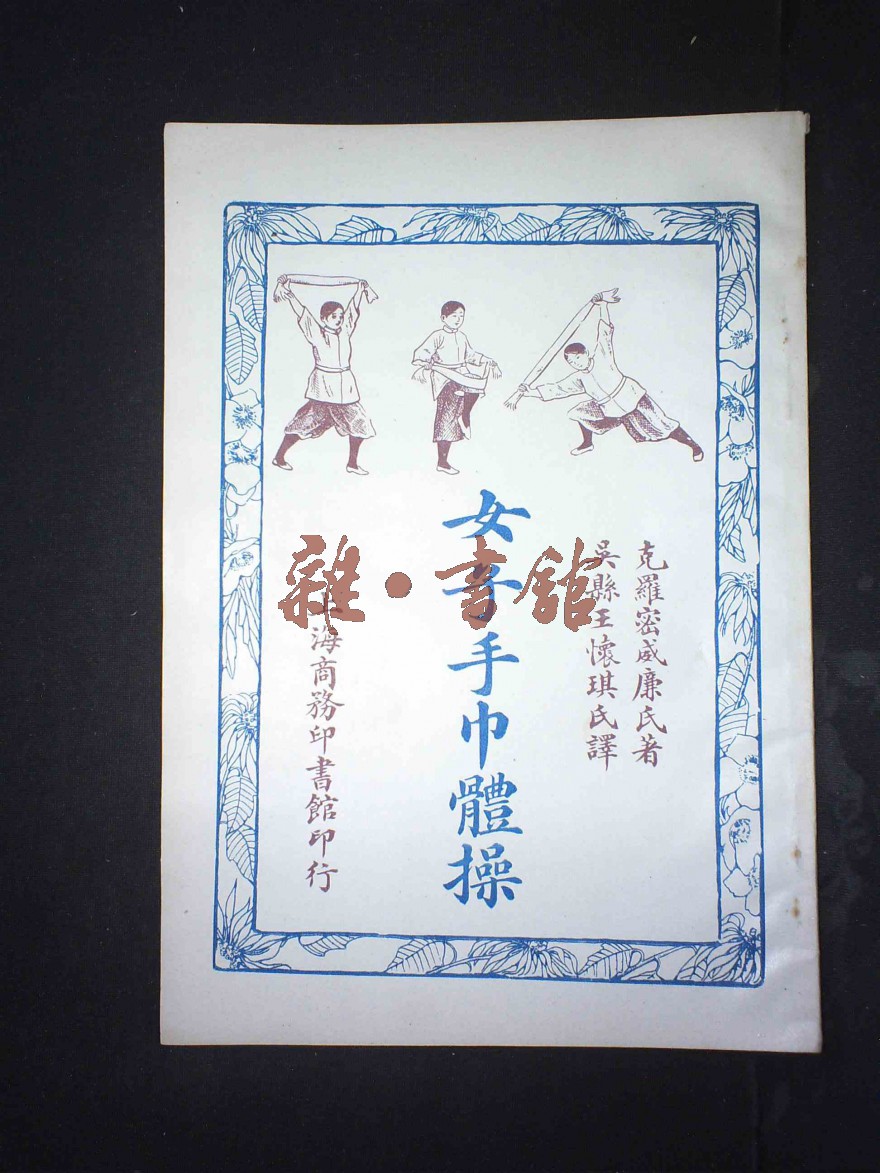 克羅密威廉氏著
吳縣王懷琪氏譯
女子手巾體操
上海商務印書館印行
雜·書館